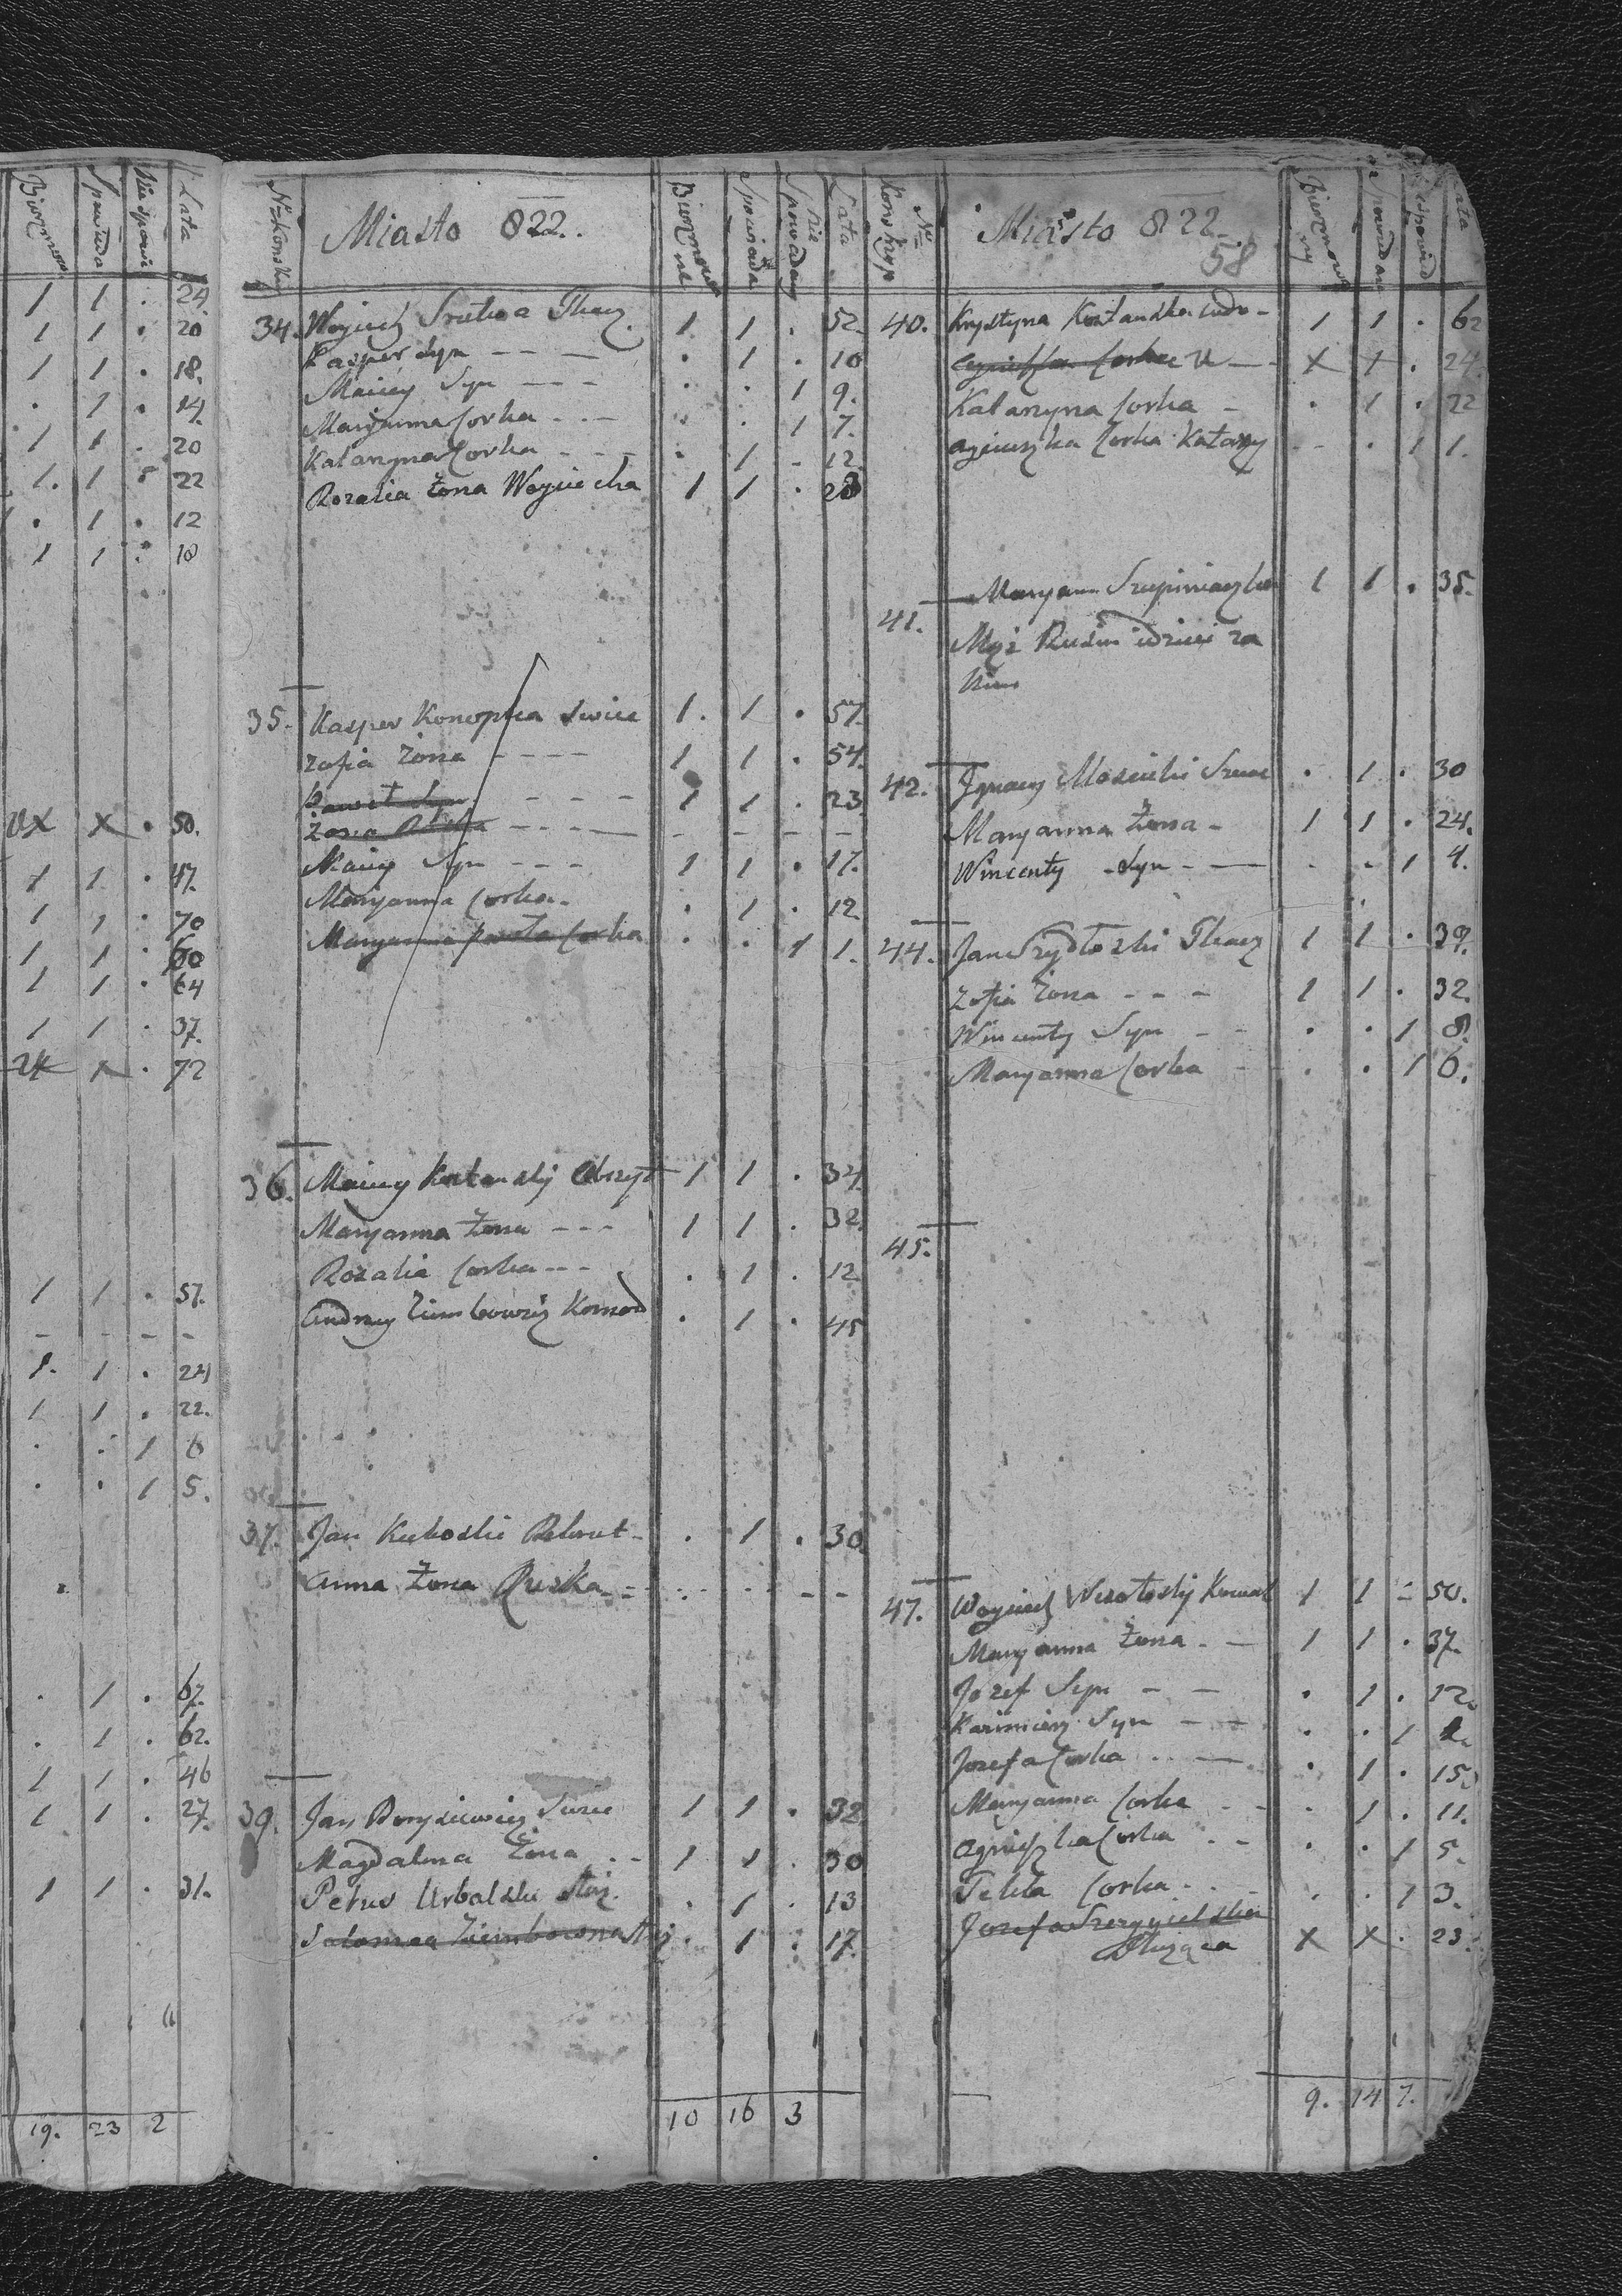 Bierzmow Spowiada Nie spowi Lata
1 1 . 24.
1 1 . 20
1 1 . 18.
. 1 . 14.
1 1 . 20
1. 1 . 22
. 1 . 12
1 1 . 18
X X . 50.
1 1 . 47.
1 1 . 70
1 1 . 60
1 1 . 64
1 1 . 37.
X . 72
1 1 . 57.
- - - -
1. 1 . 24
1 1 . 22.
. . 1 6
. . 1 5.
. 1 . 67.
. 1 . 62.
1 1 . 46
1 1 . 27.
1 1 . 31.
19. 23 2
Nro Konskr Miasto 822. Bierzmowa ne Spowiada Nie Spowiada Lata
34. Woyciech Tkacz. 1 1 . 52.
Kasper Syn - - - . 1 . 10
Maciey Syn - - - . . 1 9.
Maryanna Corka - - - . . 1 7.
Katarzyna Corka - - - . 1 - 12.
Rozalia Żona Woyciecha 1 1 . 28
35. Kasper Konopka 1. 1 . 57.
Zofia Żona - - - - 1 1 . 54.
Paweł Syn - - - - 1 1 . 23
Żona - - - - - - - -
Maciey Syn - - - 1 1 . 17.
Maryanna Corka - . 1 . 12.
Maryanna Pawła Corka . . 1 1.
36. Maciey 1 1 . 34.
Maryanna Żona - - - 1 1 . 32.
Rozalia Corka - - - . 1 . 12
Andrzey Komor . 1 . 45
37. Jan Kuboski - . 1 . 30.
Anna Żona Ruska - - . . - - -
39. Jan Borysiewicz 1 1 . 32
Magdalena Żona . - 1 1 . 30
Petrus Urbalski Służ. . 1 . 13
Salomea Ziembowna Służ . 1 . 17.
10 16 3
Nro Konskryp Miasto 822. Bierzmowa ny Spowiada Niespowiad Lata
58
40. Krystyna wdo - 1 1 . 62
Agnieszka Corka - X X . 24.
Katarzyna Corka - . 1 . 22
Agnieszka Corka Katarzy - . 1 1.
41. Maryann 1 1 . 35.
Mąż Rusin i dzieci za
Nim
42. Jgnacy Mosciński Szewc . 1 . 30
Maryanna Żona - 1 1 . 24.
Wincenty Syn - - . . 1 4.
44. Jan Szydłoski Tkacz 1 1 . 39.
Zofia Żona - - - 1 1 . 32.
Wincenty Syn - - . . 1 8.
Maryanna Corka - . . 1 6.
45.
47. Woyciech Kowal 1 1 - 50.
Maryanna Żona - - 1 1 . 37.
Jozef Syn - - . 1 . 12.
Kazimierz Syn - - . . 1
Jozefa Corka . - . 1 . 15
Maryanna Corka . - . 1 . 11.
Agnieszka Corka . - . . 1 5.
Tekla Corka . . . . 1 3.
Jozefa
Służąca X X . 23.
9. 14 7.